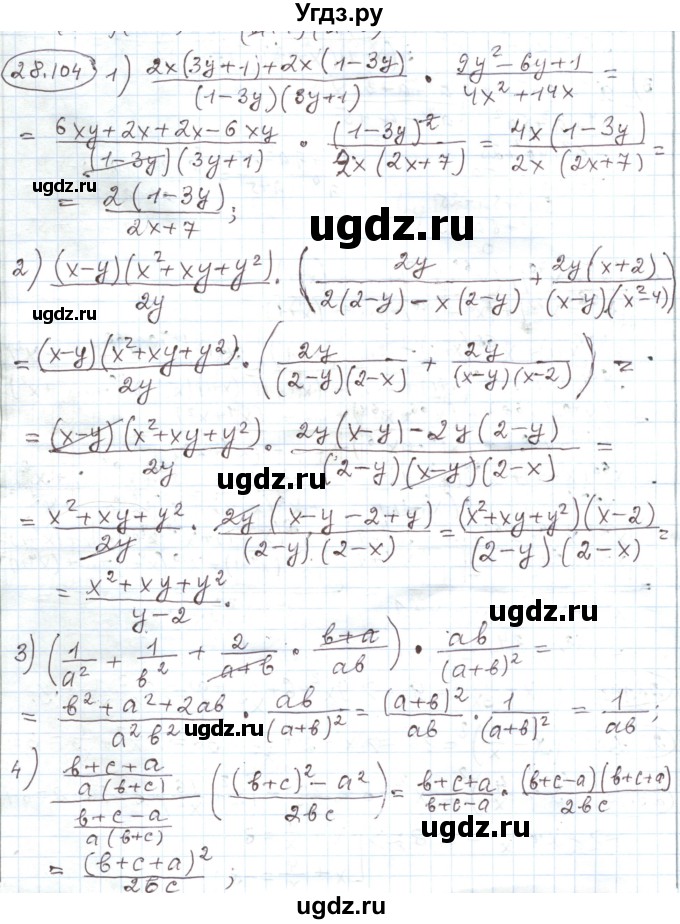 Угдз.ру
28.104 1) (2x(3y+1)+2x(1-3y))/((1-3y)(3y+1)) · (9y²-6y+1)/(4x²+14x) =
= (6xy+2x+2x-6xy)/((1-3y)(3y+1)) · (1-3y)²/(2x(2x+7)) = (4x(1-3y))/(2x(2x+7)) =
ugdz.ru
= (2(1-3y))/(2x+7);
ugdz.ru
2) ((x-y)(x²+xy+y²))/(2y) · ((2y)/(2(2-y)-x(2-y)) + (2y(x+2))/((x-y)(x²-4)))
ugdz.ru
= ((x-y)(x²+xy+y²))/(2y) · ((2y)/((2-y)(2-x)) + (2y)/((x-y)(x-2))) =
= ((x-y)(x²+xy+y²))/(2y) · (2y(x-y)-2y(2-y))/((2-y)(x-y)(2-x)) =
ugdz.ru
= (x²+xy+y²)/(2y) · (2y(x-y-2+y))/((2-y)(2-x)) = ((x²+xy+y²)(x-2))/((2-y)(2-x)) =
= (x²+xy+y²)/(y-2).
ugdz.ru
3) (1/a² + 1/в² + 2/(a+в) · (в+a)/(aв)) · (aв)/(a+в)² =
= (в²+a²+2aв)/(a²в²) · (aв)/(a+в)² = (a+в)²/(aв) · 1/(a+в)² = 1/(aв);
ugdz.ru
4) ((в+c+a)/(a(в+c)))/((в+c-a)/(a(в+c))) (((в+c)²-a²)/(2вc)) = (в+c+a)/(в+c-a) · ((в+c-a)(в+c+a))/(2вc)
ugdz.ru
= (в+c+a)²/(2вc);
ugdz.ru
ugdz.ru